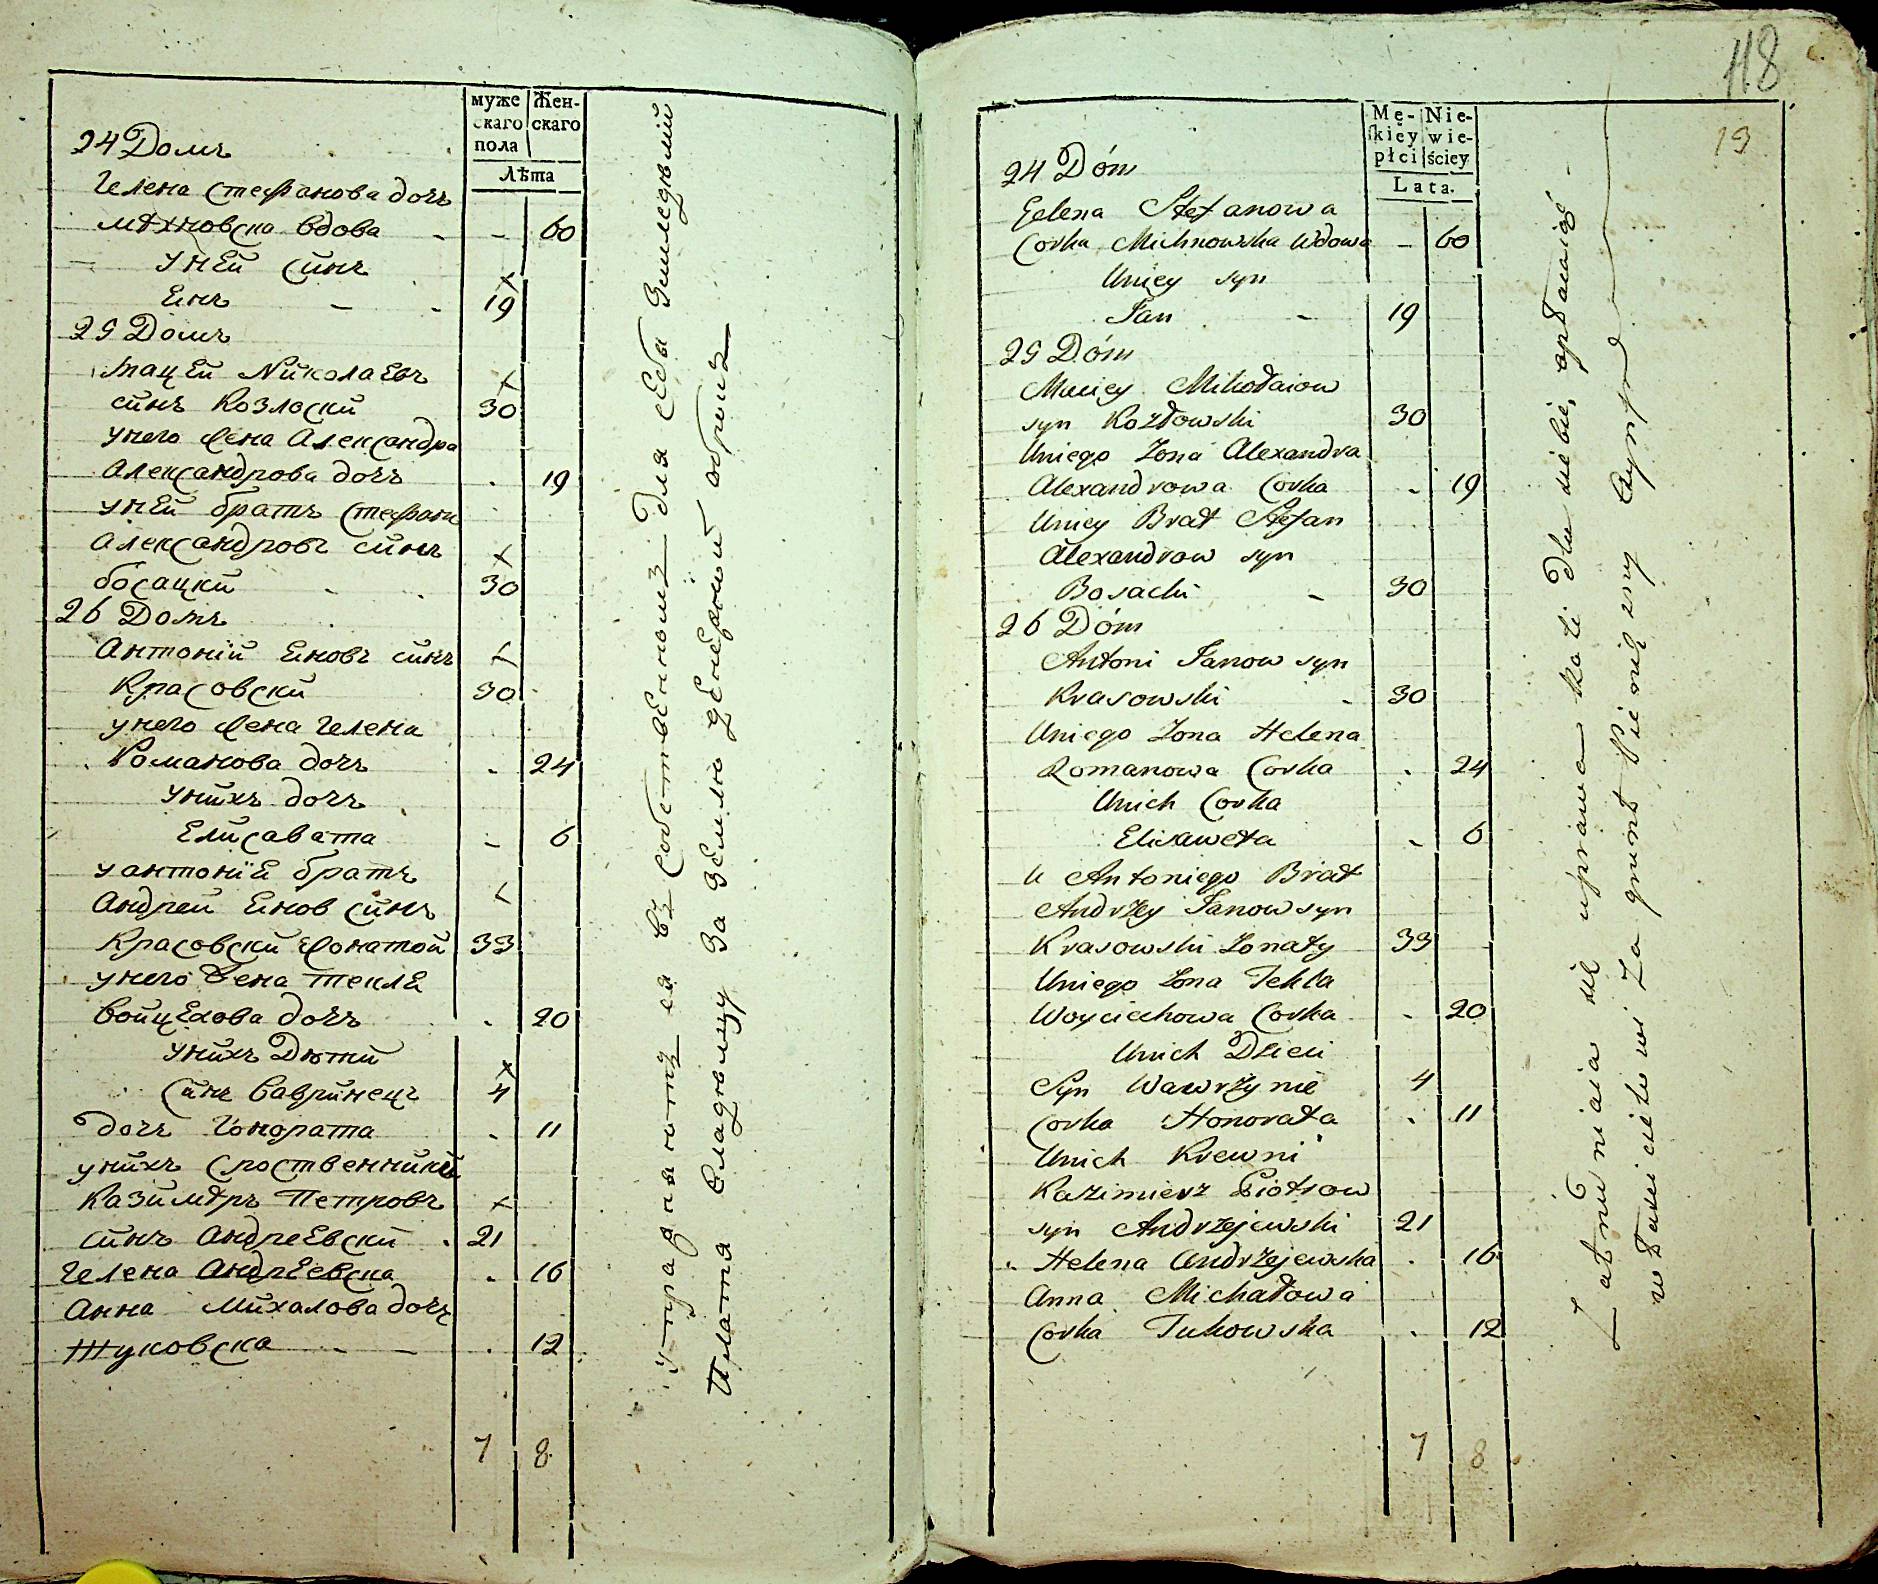 муже
скаго
пола
Жен-
скаго
Лѣта
24 Домъ
Гелена Стефанова дочъ
Мѣхновска вдова - - 60
У ней синъ
Енъ - - 19
25 Домъ
Мацей Николаевъ
синъ Козлоский 30
у него жена Александра
Александрова дочъ . 19
у ней братъ Стефанъ
Александровъ синъ
босацкий - . 30
26 Домъ
Антоний Еновъ синъ
Красовский 30
у него жена Гелена
Романова дочъ . 24
у нихъ дочъ
Елисавата - 6
у антоние братъ
Андрей Енов синъ
Красовский жонатой 33
у него жена текле
войцехова дочъ . 20
у нихъ Дѣти
Синъ вавринецъ 4
дочъ Гонората . 11
у нихъ
Казимѣръ Петровъ
синъ Андреевский . 21
Гелена Андреевска . 16
Анна Михалова дочъ
Тuковска - - . 12
7 8
въ для себя
Платя за землю
118
19
Mę-
skiey
płci
Nie-
wie-
ściey
Lata.
24 Dóm
Gelena Stefanowa
Corka Michnowska Wdowa - 60
Uniey syn
Jan - 19
25 Dóm
Maciey Mikołaiow
syn Kozłowski 30
Uniego Zona Alexandra
Alexandrowa Corka - 19
Uniey Brat Stefan
Alexandrow syn
Bosacki - 30
26 Dóm
Antoni Janow syn
Krasowski - 30
Uniego Zona Helena
Romanowa Corka . 24
Unich Corka
Elisaweta - 6
U Antoniego Brat
Andrzey Janow syn
Krasowski Zonaty 33
Uniego Zona Tekla
Woyciechowa Corka - 20
Unich Dzieci
Syn Wawrzyniec 4
Corka Honorata . 11
Unich Krewni
Kazimierz Piotrow
syn Andrzejewski 21
Helena Andrzejewska . 16
Anna Michałowa
Corka Tukowska . 12
7 8
Zatrudniaia się uprawa dla siebie,
właścicielowi Za grunt Pieniężny Czynsz